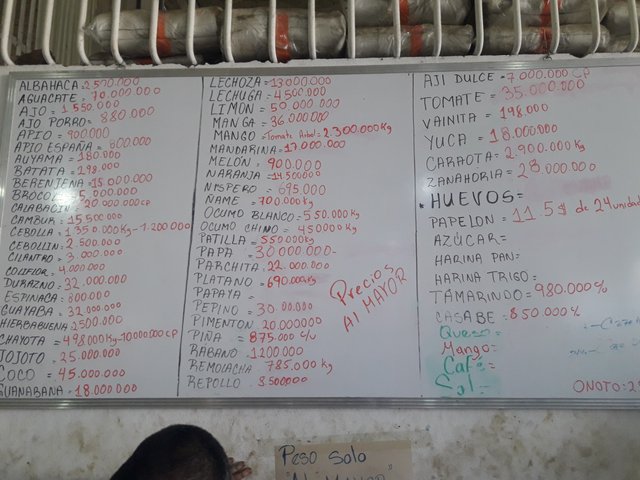 ALBAHACA = 2500.000
AGUACATE = 70.000.000
AJO = 1 550.000
AJO PORRO = 880.000
APIO = 900.000
APIO ESPAÑA = 800.000
AUYAMA = 180.000
BATATA = 298.000
BERENJENA = 15.000.000
BROCOLI 5.000.000
CALABACIN 20.000.000 CP
CAMBUR = 15.500.000
CEBOLLA = 1.350.000Kg - 1.200.000
CEBOLLIN = 2.500.000
CILANTRO = 3.000.000
COLIFLOR = 4.000.000
DURAZNO = 32.000.000
ESPINACA = 800000
GUAYABA = 32.000.000
HIERBABUENA 1500000
CHAYOTA = 498000Kg - 10.000000 CP
JOJOTO = 25.000.000
COCO = 45.000.000
GUANABANA = 18.000.000
LECHOZA = 13000.000
LECHUGA = 4500.000
LIMON = 50 000.000
MANGA = 36000.000
MANGO = Tomate Arbol = 2.300.000Kg
MANDARINA = 17.000.000
MELÓN = 900.000
NARANJA = 14.500000
NISPERO = 695.000
ÑAME = 700.000Kg
OCUMO BLANCO = 550.000Kg
OCUMO CHINO = 450000Kg
PATILLA = 550000Kg
PAPA = 30000.000-
PARCHITA = 22.000.000
PLATANO = 690.000Kg
PAPAYA =
PEPINO = 30.00.000
PIMENTON 20.000000
PIÑA = 875.000 c/u
RABANO = 1200 000
REMOLACHA = 785.000 Kg
REPOLLO = 8.500000
Precios
Al MAYOR
AJI DULCE = 7.000.000 CP
TOMATE = 35.000.000
VAINITA = 198.000
YUCA = 18.000.000
CARAOTA = 2.900.000Kg
ZANAHORIA = 28.000.000
HUEVOS =
PAPELON = 11.5$ de 24 unidad
AZÚCAR =
HARINA PAN =
HARINA TRIGO =
TAMARINDO = 980.000
CASABE = 850.000
Queso =
Mango =
Café =
Sal =
ONOTO: 2
Peso solo
"Al Mayor"